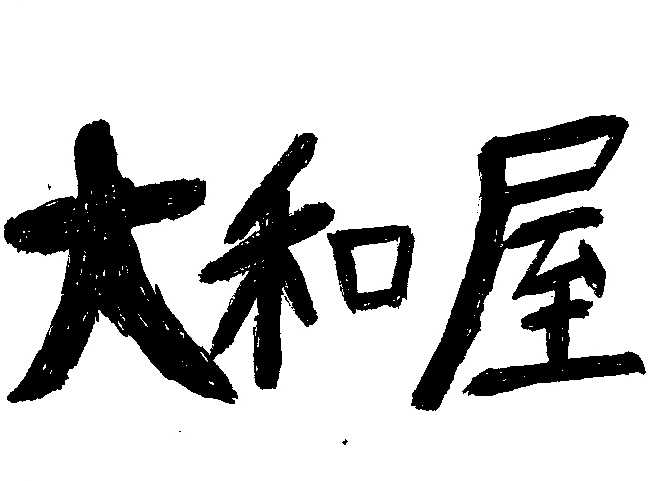 大和屋